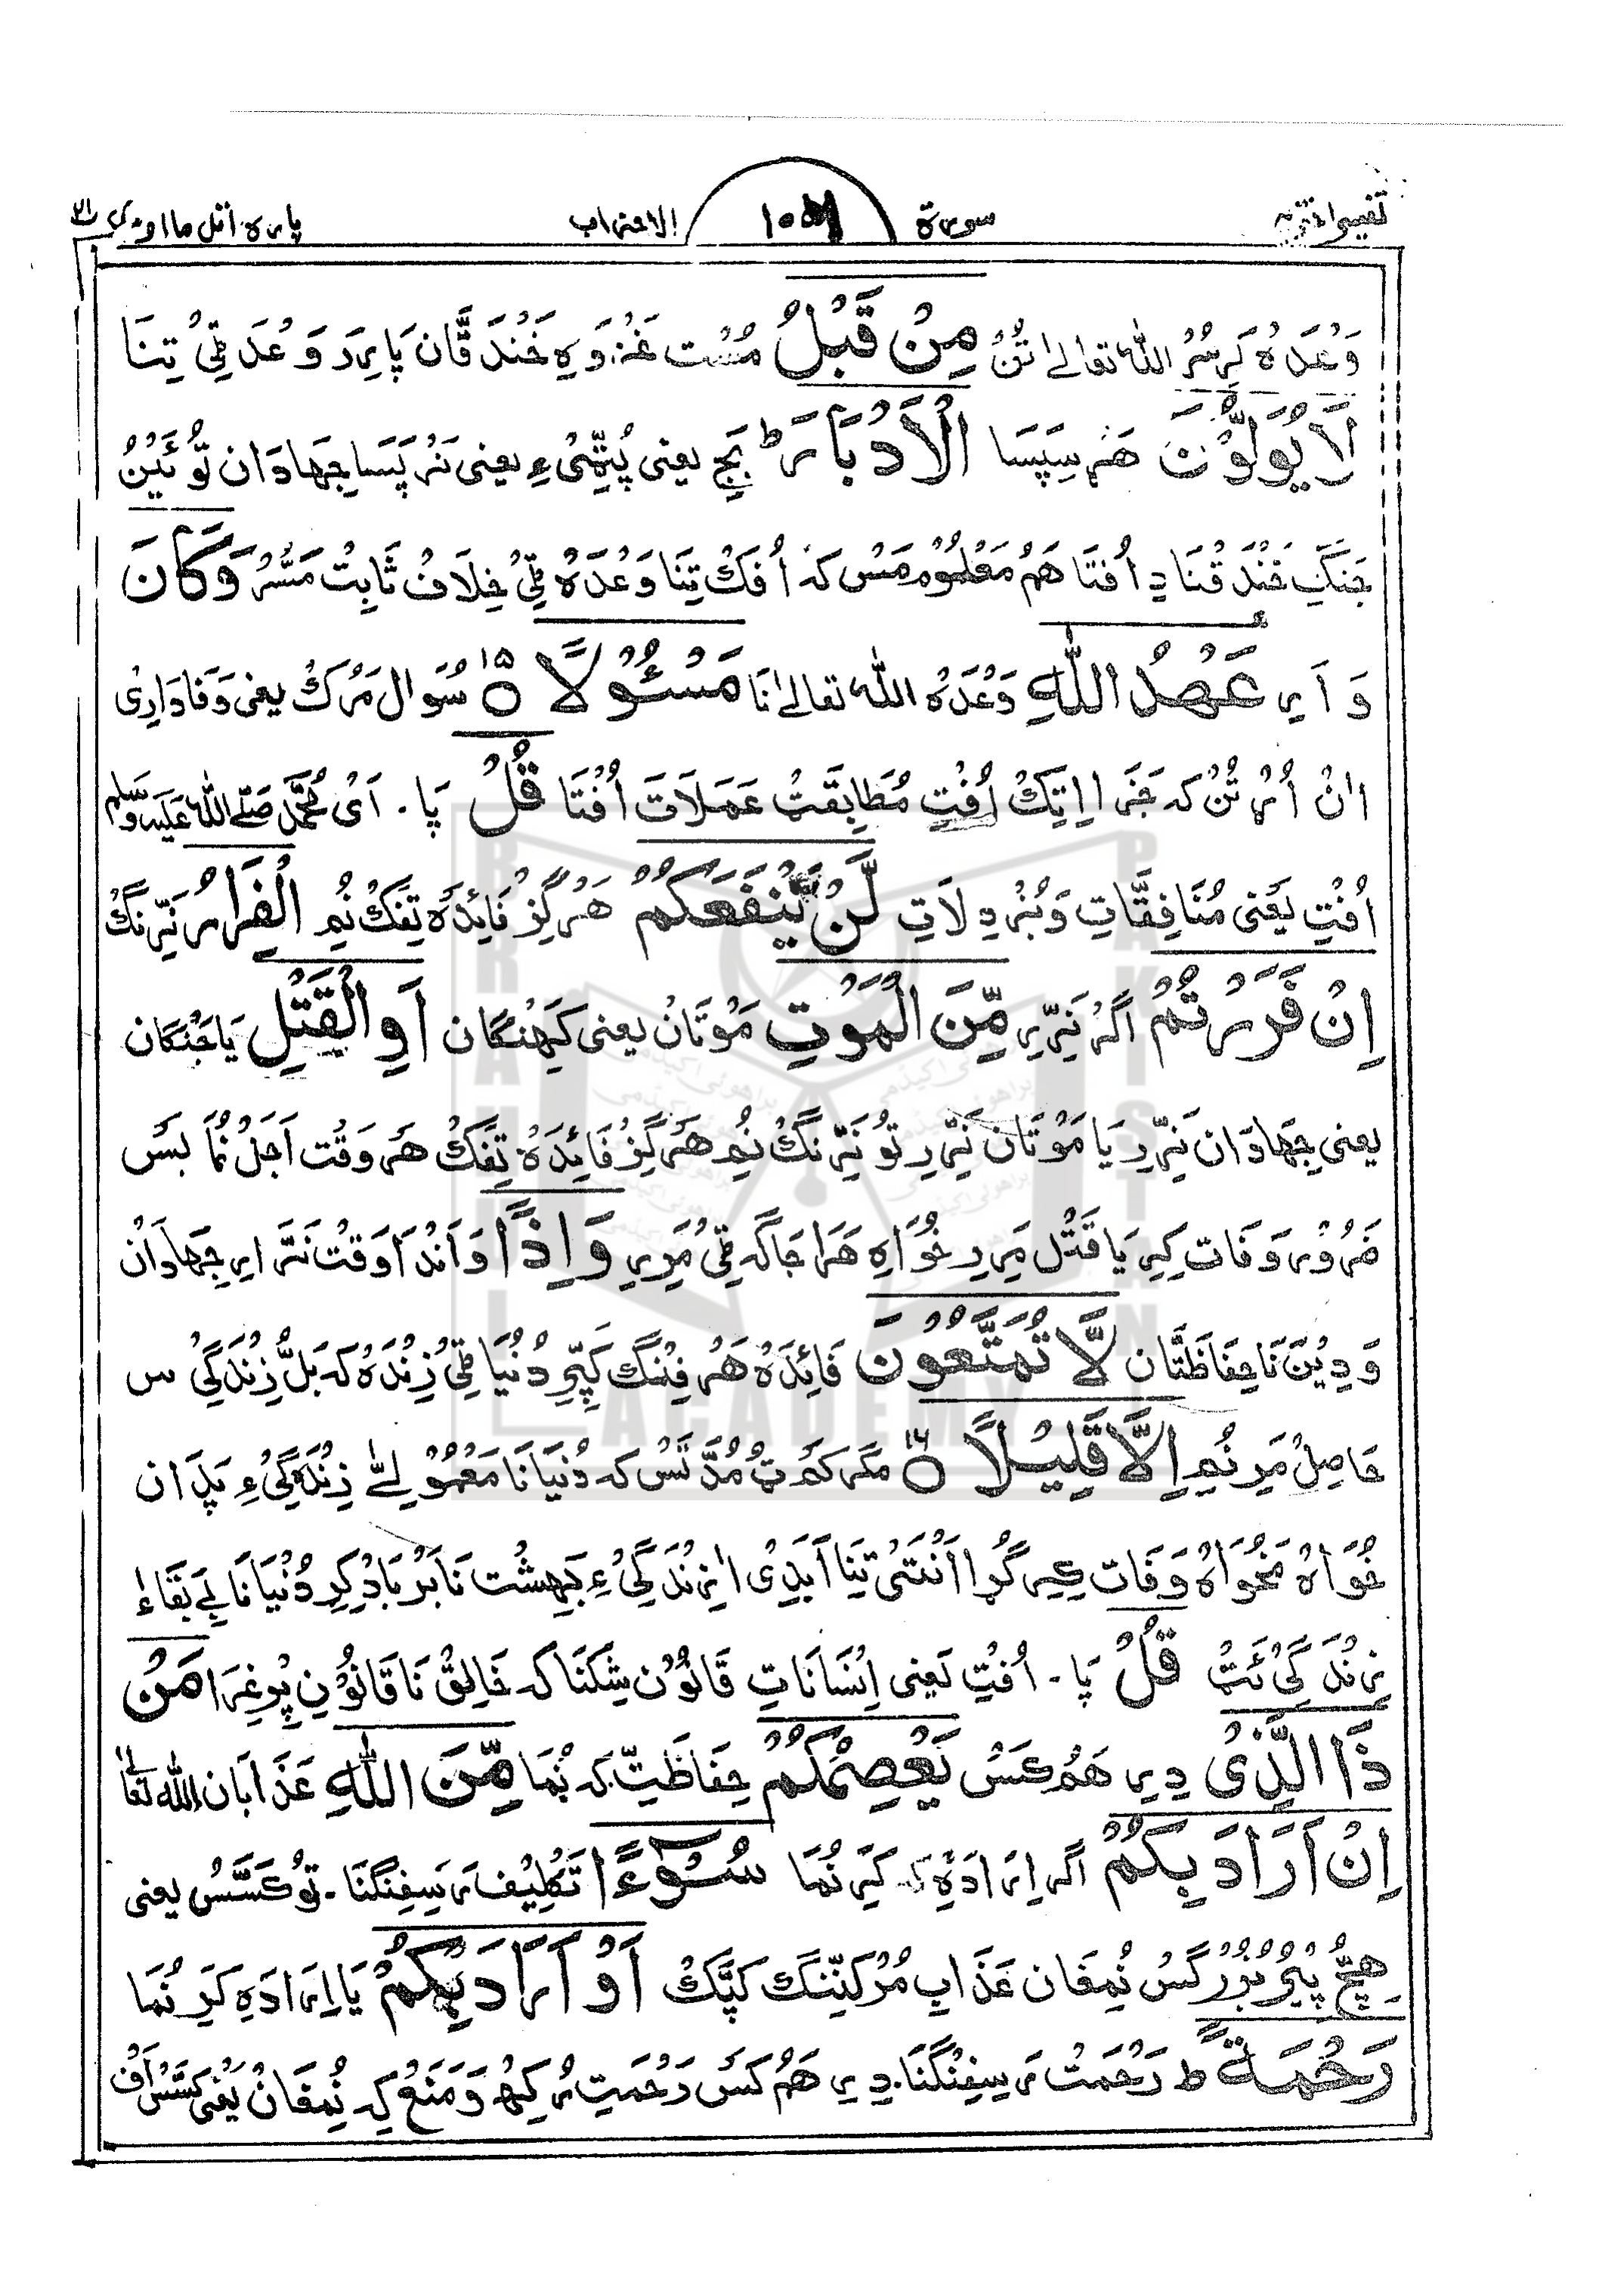 سورة الاحزاب پاره اتل ما اوحی ۲۱
وَعُدَہ کرسُر اللہ تعالےٰ تُن مِنْ قَبْلُ مُسْت غَزْوَہِ خَنْدَقَان پَاہِرَد وَعُدَ ٹِیْ تِنَا
لَا يُوَلُّوْنَ هَرْسِپَسَا الْاَدْبَارَ ط بَجِ یعنی پُٹِّیْ ءِ یعنی نَرْ پَسَا جِهَادَان تُوْ ئَیْنُ
جَنگِ خَنْدَقْنَا دِ اُفتَا هَمْ مَعْلُوْم مَسْ کہ اُفک تِنَا وَعْدَہْ ٹِیْ خِلَافْ ثَابِتْ مَسُّرْ وَكَانَ
وَ اَیر عَهْدُ اللّٰهِ وَعْدَہْ اللہ تعالےٰ نَا مَسْـُٔوْلًا ۱۵ سُوَال مَرُکْ یعنی وَفَادَارِیْ
اٰنْ اُرْ تُنْ کہ جَزَا اِتِکْ اُفْتِ مُطَابِقَتْ عَمَلَاتَ اُفتَا قُلْ پَا ۔ اَیْ مُحَمَّدْ صَلَّے اللہُ عَلَیْہِ وَسَلَّم
اُفْتِ یَعْنی مُنَافِقَّاتِ وَبُزْدِلَاتِ لَنْ يَّنْفَعَكُمُ هَرْگِزْ فَائِدَہْ تِفَکْ نُمِ الْفِرَارُ نَرِّنگْ
اِنْ فَرَرْتُمْ اگَرْ نَرِّرِ مِّنَ الْمَوْتِ مَوْتَانْ یعنی کَہنگان اَوِ الْقَتْلِ یَا جَنگان
یعنی جِهَادَان نَرِّرِ یَا مَوْتَان نَرِّرِ تُوْ نَرِّنگْ نُمِ هَرْگِزْ فَائِدَہْ تِفَکْ هَرْ وَقْت اَجَلْ نُمَا بَس
ضَرُوْر وَفَات کِرِ یَا قَتْل مَرِرِ خُوَاہِ هَرَا جَاگَہ ٹِیْ مَرِرِ وَاِذًا وَ اَنْدَا وَقْتْ نَرَّ ایر جِهَادَانْ
وَ دِیْنَ نَا حِفَاظَتَّان لَّا تُمَتَّعُوْنَ فَائِدَہْ هَرْفِنْگ کَپِّرِ دُنْیَا ٹِیْ زِنْدَہْ کہ بَلُّ زِنْدَگِیْ س
حَاصِلْ مَرِ نُمِ اِلَّا قَلِيْلًا ۱۶ مَگَر کَمْ تُ مُدَّتَسْ کہ دُنْیَا نَا مَعْمُوْلِیْ زِنْدَگِیْ ءِ پِدَان
خُوَاہْ مَخُوَاہْ وَفَات کِرِ گُڑا اَنْتَئے تِنَا اَبَدِیْ اٰ زِنْدَگِیْ ءِ بَہِشْت نَا بَرْبَادْ کِرِ دُنْیَا نَا بے بَقَاءٰ
زِنْدَگِیْ ئَٹْ قُلْ پَا ۔ اُفْتِ یَعنی اِنْسَانَاتِ قَانُوْن شِکَنَا کہ خَالِقْ نَا قَانُوْنِ پِرْغِرَا مَنْ
ذَا الَّذِيْ دِیر هَمْ کَسْ يَعْصِمُكُمْ حِفَاظَتِّ کہ نُمَا مِّنَ اللّٰهِ عَذَابَان اللہ تعالےٰ
اِنْ اَرَادَ بِكُمْ اگر اِرَادَہِ کَرِ نُمَا سُوْٓءًا تَکْلِیْف رَسِفِنگنَا ۔ تُوْ کَسَّسْ یعنی
هِچُّ پِیْرُ بُزُرْگَسْ نُمِفَان عَذَابِ مُرْ کَنِّنگ کَپَّکْ اَوْ اَرَادَ بِكُمْ یَا اِرَادَہِ کَرِ نُمَا
رَحْمَةً ط رَحْمَتْ رَسِفِنْگنَا ۔ دِیر هَمْ کَسْ رَحْمَتِ وَ مَنَعْ کہ نُمِفَانْ یَعْنی کَسَّسْ اَفْ